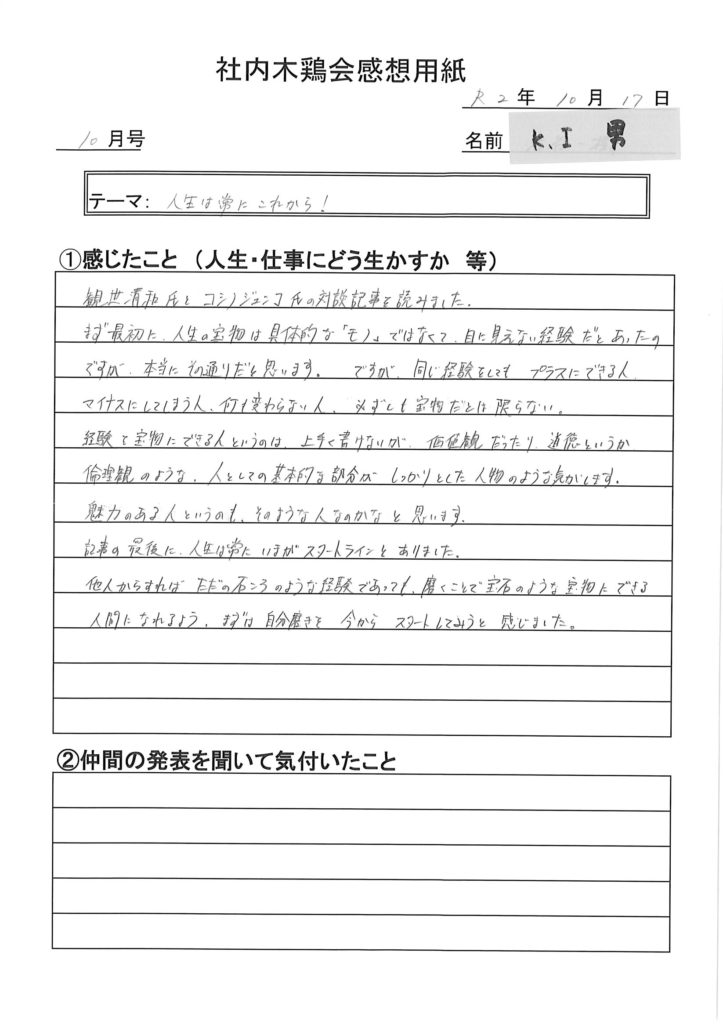 社内木鶏会感想用紙
R2年 10月 17日
10月号
名前 K.I 男
テーマ: 人生は常にこれから!
①感じたこと (人生・仕事にどう生かすか 等)
観世清和氏とコシノジュンコ氏の対談記事を読みました。
まず最初に、人生の宝物は具体的な「モノ」ではなくて、目に見えない経験だとあったの
ですが、本当にその通りだと思います。 ですが、同じ経験をしても プラスにできる人、
マイナスにしてしまう人、何も変わらない人、必ずしも宝物だとは限らない。
経験で宝物にできる人というのは、上手く書けないが、価値観だったり、道徳というか
倫理観のような、人としての基本的な部分がしっかりとした人物のような気がします。
魅力のある人というのも、そのような人なのかなと思います。
記事の最後に、人生は常にいまがスタートラインとありました。
他人からすればただの石ころのような経験であっても、磨くことで宝石のような宝物にできる
人間になれるよう、まずは自分磨きを 今から スタートしてみうと 感じました。
②仲間の発表を聞いて気付いたこと